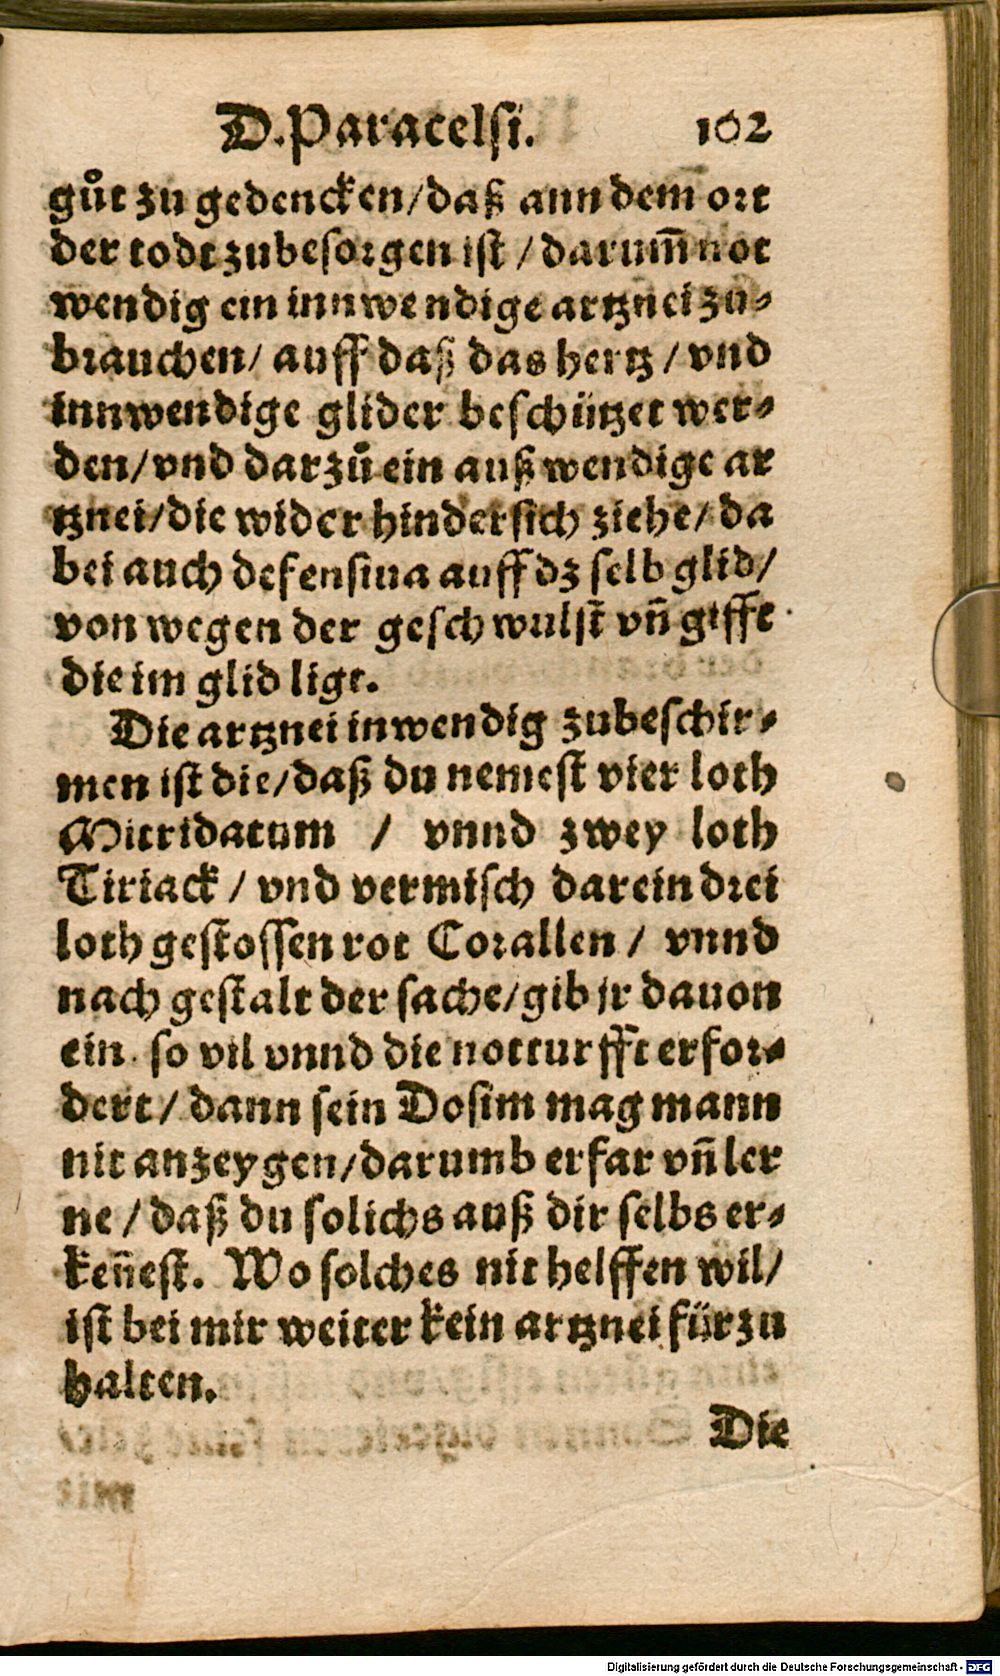 D. Paracelsi. 102
gůt zu gedencken/daß ann dem ort
der todt zubesorgen ist / darum̃ not
wendig ein innwendige artznei zu-
brauchen/ auff daß das hertz / vnd
innwendige glider beschützet wer-
den/vnd darzů ein außwendige ar
tznei/die wider hindersich ziehe/ da
bei auch defensiua auff dz selb glid/
von wegen der geschwulst vñ gifft
die im glid ligt.
Die artznei inwendig zubeschir-
men ist die/daß du nemest vier loth
Mitridatum / vnnd zwey loth
Tiriack / vnd vermisch darein drei
loth gestossen rot Corallen / vnnd
nach gestalt der sache/gib jr dauon
ein so vil vnnd die notturfft erfor-
dert / dann sein Dosim mag mann
nit anzeygen/darumb erfar vñ ler
ne / daß du solichs auß dir selbs er-
keñest. Wo solches nit helffen wil/
ist bei mir weiter kein artznei fürzu
halten.
Die
Digitalisierung gefördert durch die Deutsche Forschungsgemeinschaft - DFG